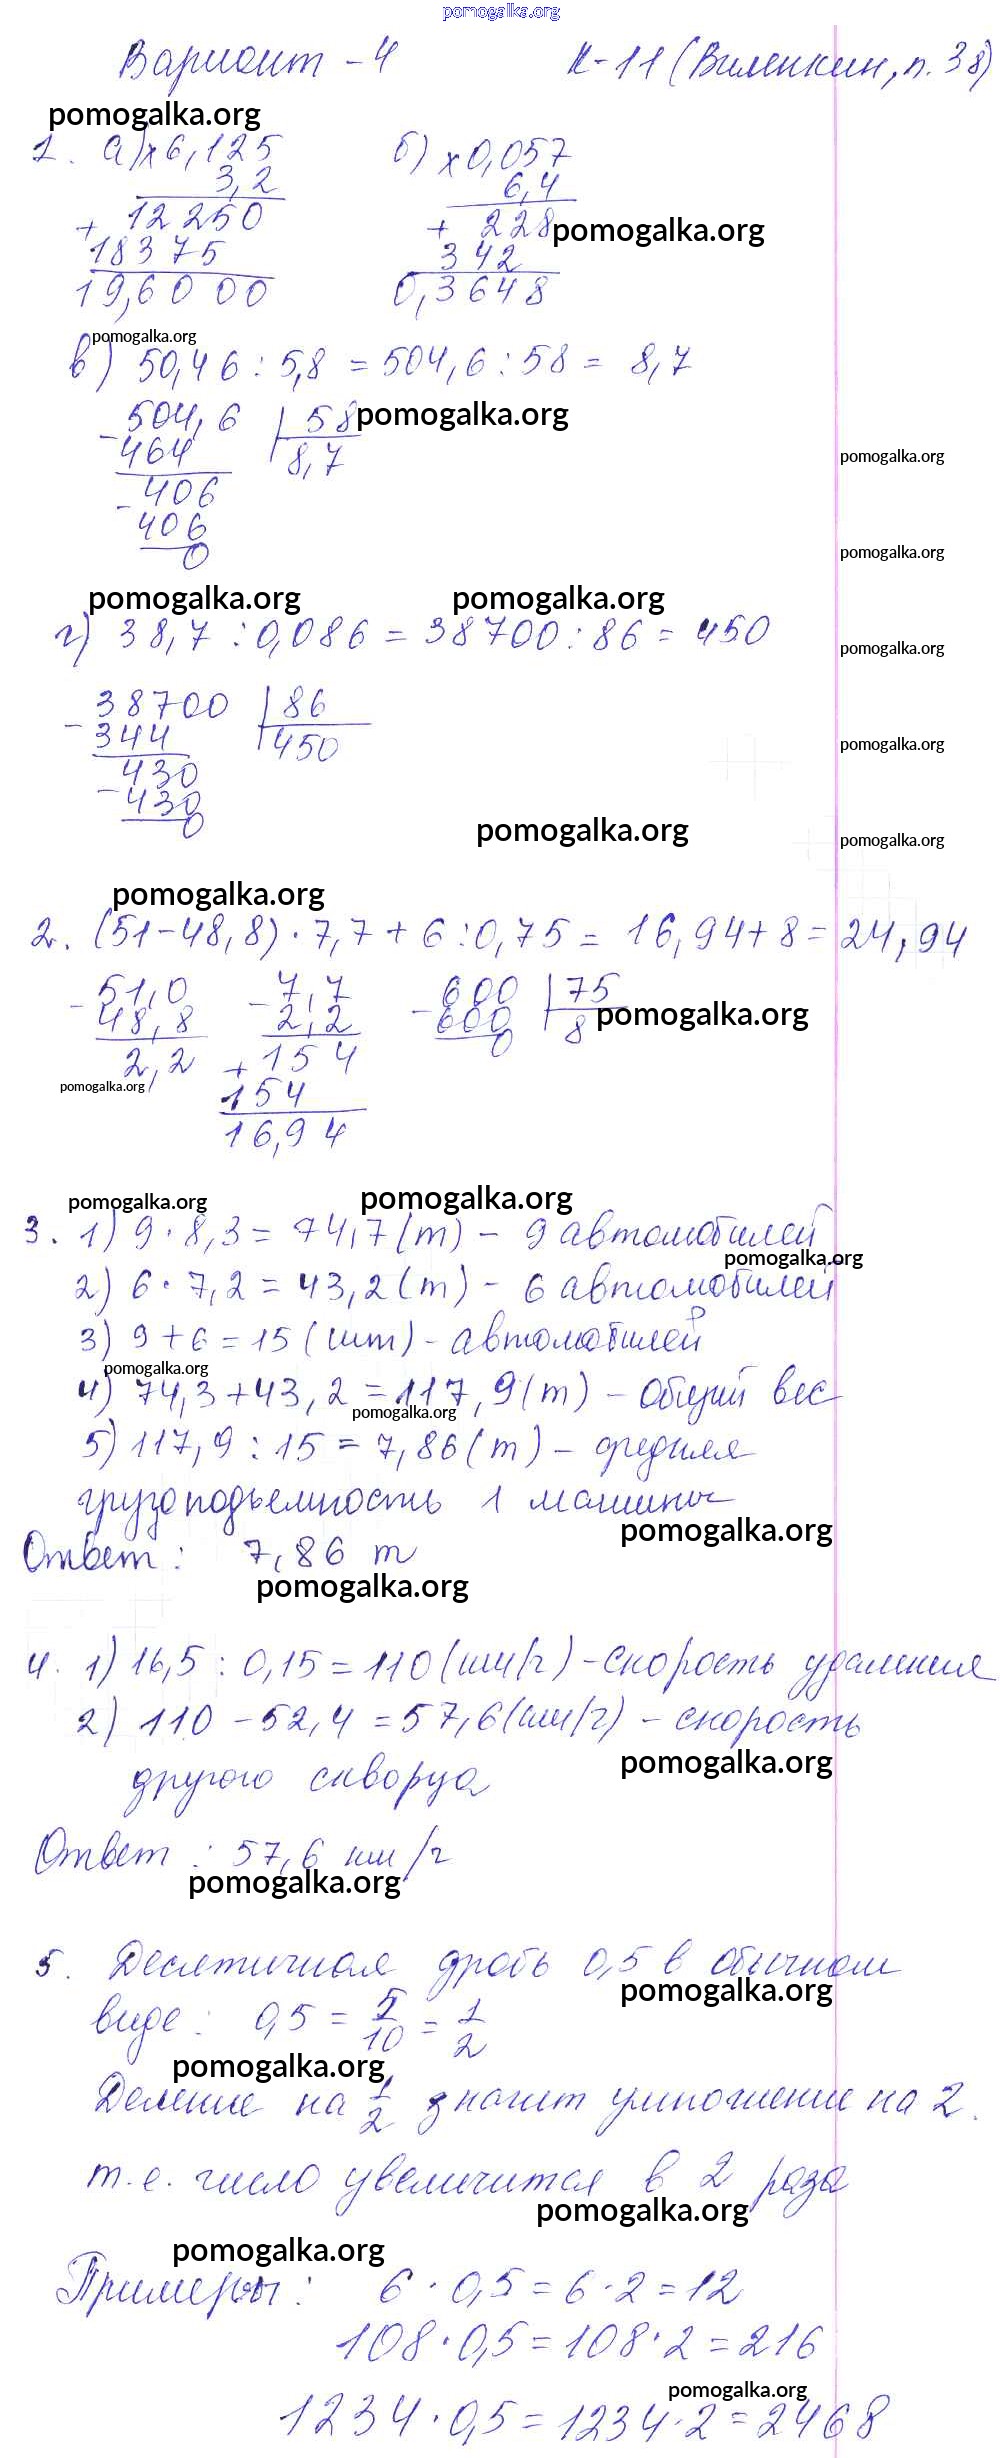 pomogalka.org
Вариант - 4 К-11 (Виленкин, п. 38)
pomogalka.org
1. а) x 6,125 б) x 0,057
3,2 6,4
+ 12250 + 228 pomogalka.org
18375 342
19,6000 0,3648
pomogalka.org
в) 50,46 : 5,8 = 504,6 : 58 = 8,7
- 504,6 | 58 pomogalka.org
464 8,7
pomogalka.org
- 406
406
pomogalka.org
0
pomogalka.org pomogalka.org
г) 38,7 : 0,086 = 38700 : 86 = 450
pomogalka.org
- 38700 | 86
344 450
pomogalka.org
- 430
430
0
pomogalka.org pomogalka.org
pomogalka.org
2. (51-48,8) · 7,7 + 6 : 0,75 = 16,94 + 8 = 24,94
- 51,0 - 7,7 - 600 | 75
48,8 2,2 600 8 pomogalka.org
2,2 + 154 0
pomogalka.org 154
16,94
pomogalka.org pomogalka.org
3. 1) 9 · 8,3 = 74,7 (т) - 9 автомобилей
pomogalka.org
2) 6 · 7,2 = 43,2 (т) - 6 автомобилей
3) 9 + 6 = 15 (шт) - автомобилей
pomogalka.org
4) 74,3 + 43,2 = 117,9 (т) - общий вес
pomogalka.org
5) 117,9 : 15 = 7,86 (т) - средняя
грузоподъемность 1 машины
pomogalka.org
Ответ : 7,86 т
pomogalka.org
4. 1) 16,5 : 0,15 = 110 (км/г) - скорость удаления
2) 110 - 52,4 = 57,6 (км/г) - скорость
pomogalka.org
другого скворца
Ответ : 57,6 км/г
pomogalka.org
5. Десятичная дробь 0,5 в обычном
pomogalka.org
виде : 0,5 = 5/10 = 1/2
pomogalka.org
Деление на 1/2 значит умножение на 2.
т.е. число увеличится в 2 раза
pomogalka.org
pomogalka.org
Примеры : 6 · 0,5 = 6 · 2 = 12
108 · 0,5 = 108 · 2 = 216
pomogalka.org
1234 · 0,5 = 1234 · 2 = 2468